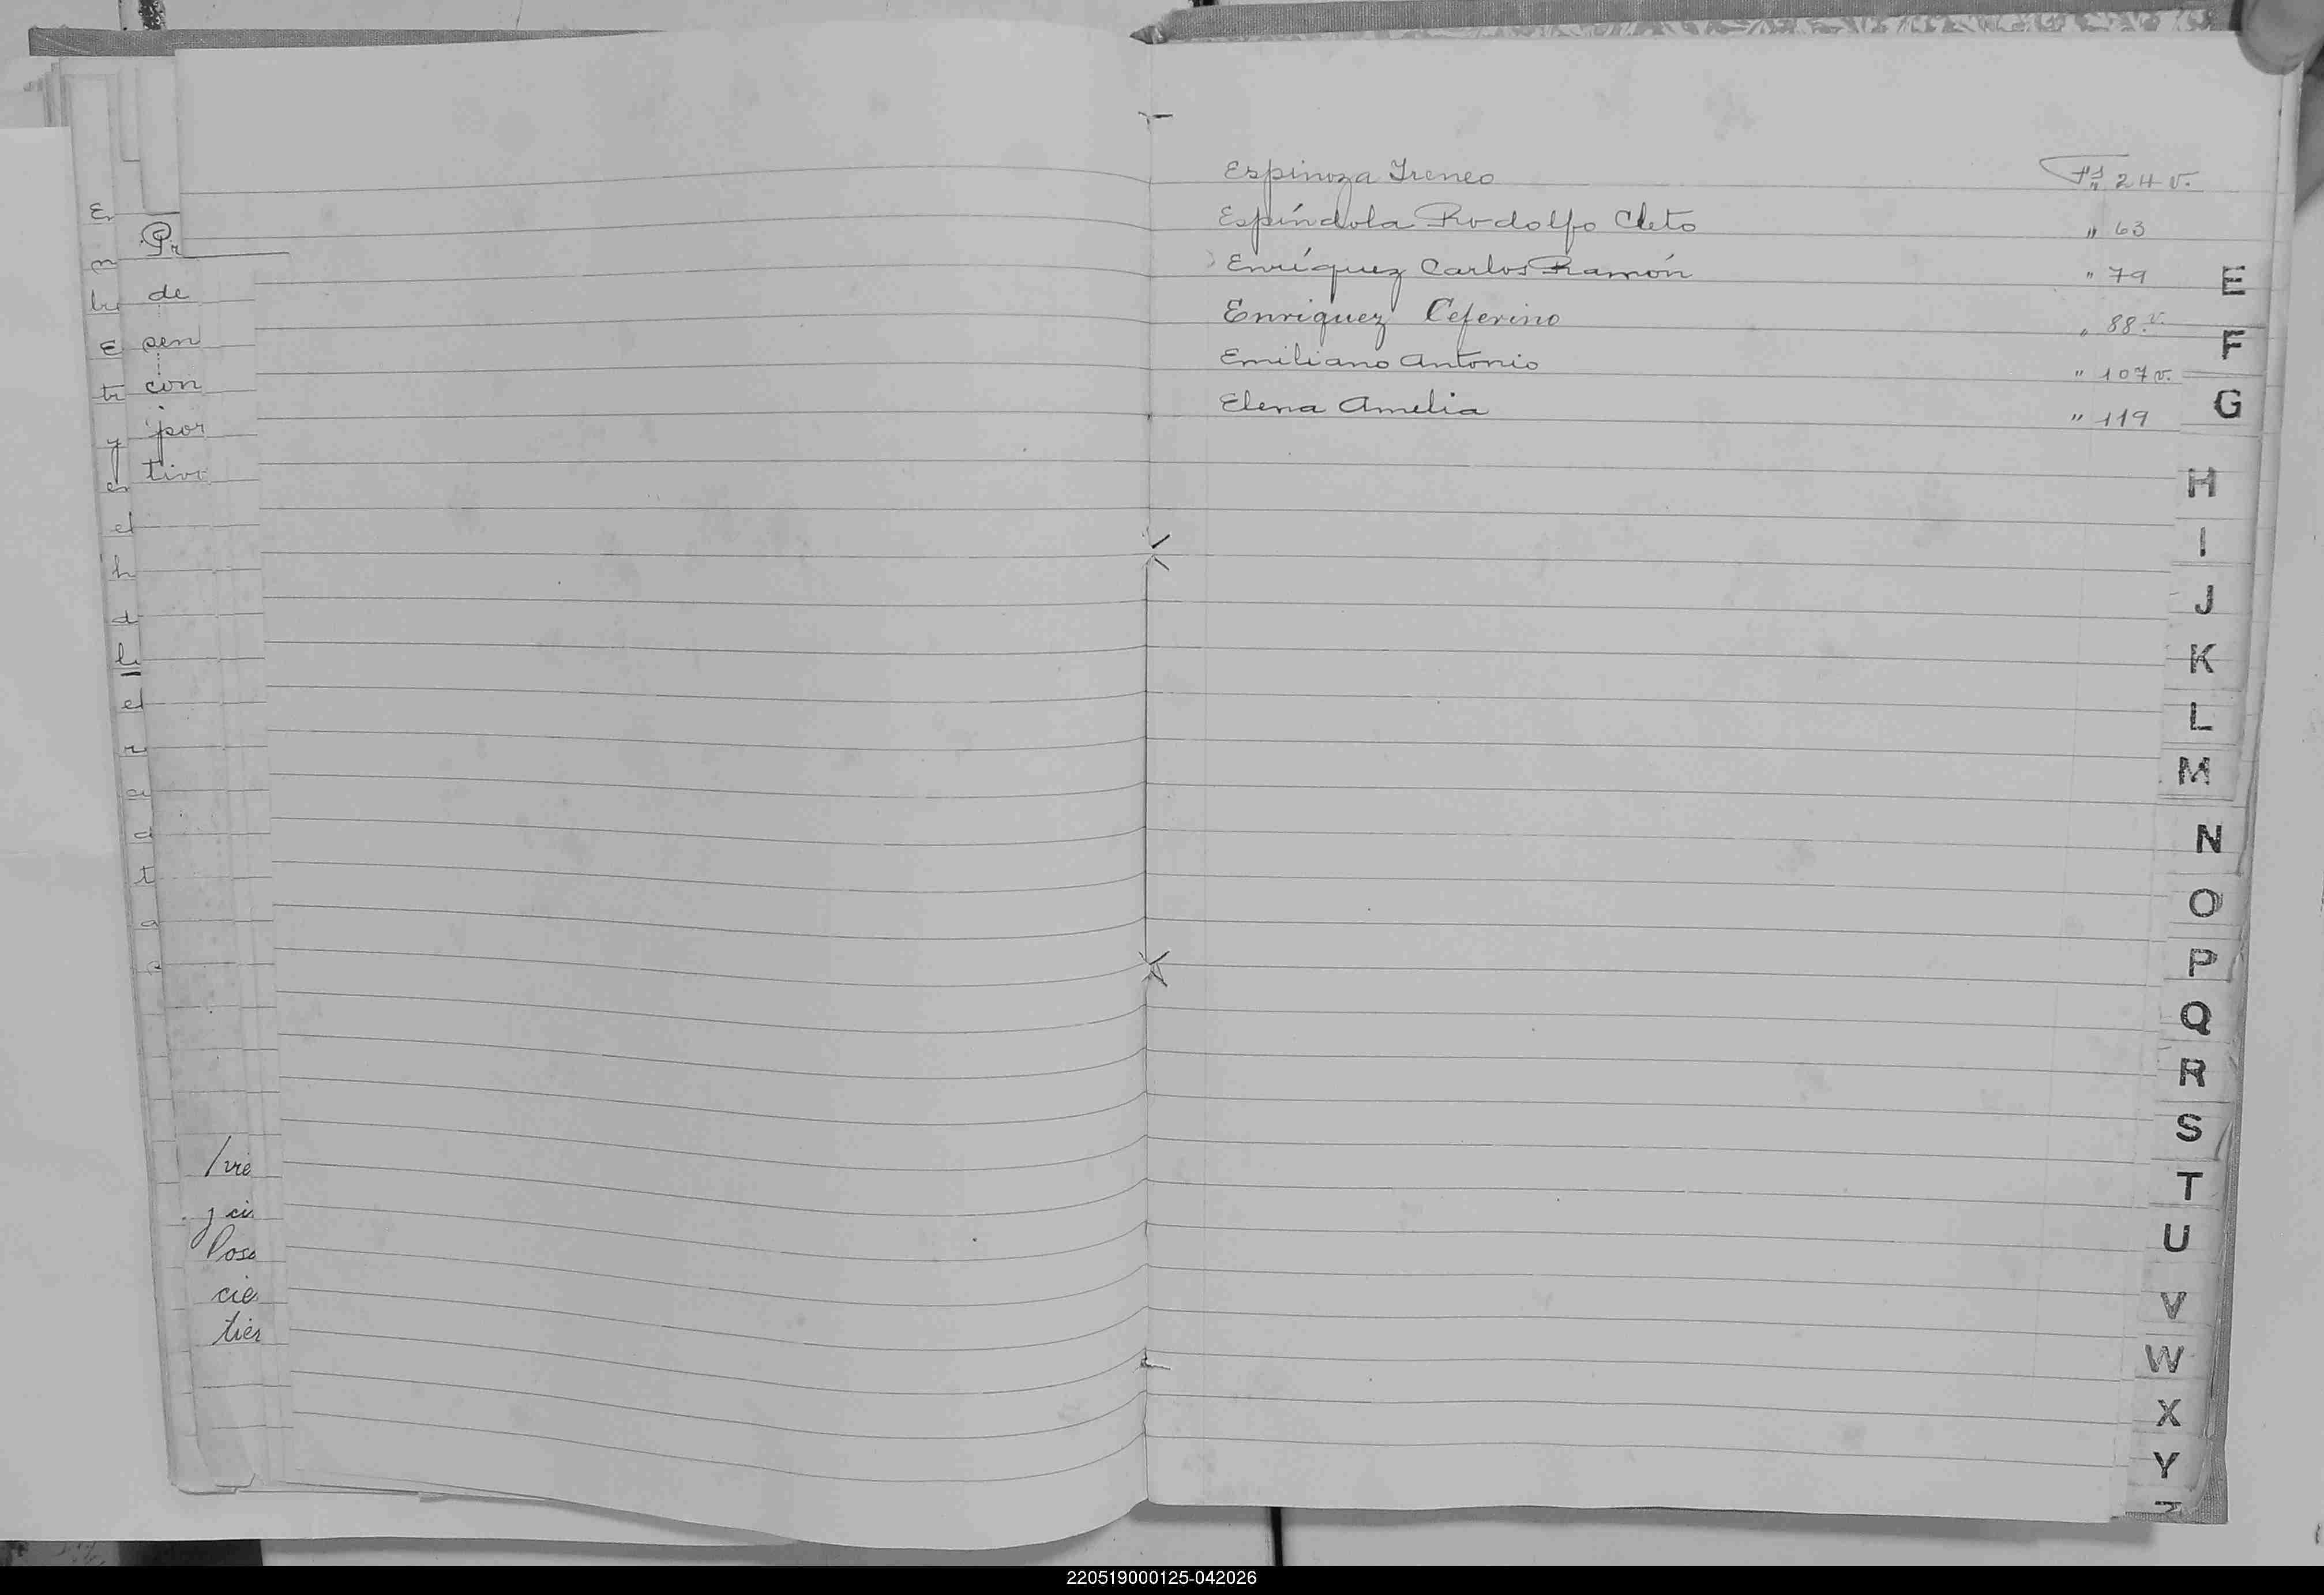 Pr
de
sen
con
por
tivo
el
h
d
el
t
a
/vie
Pose
cie
tier
Espinoza Ireneo Fs. 24 v.
Espíndola Rodolfo Cleto " 63
Enríquez Carlos Ramón " 79
Enriquez Ceferino " 88 v.
Emiliano Antonio " 107 v.
Elena Amelia " 119
E
F
G
H
I
J
K
L
M
N
O
P
Q
R
S
T
U
V
W
X
Y
Z
220519000125-042026